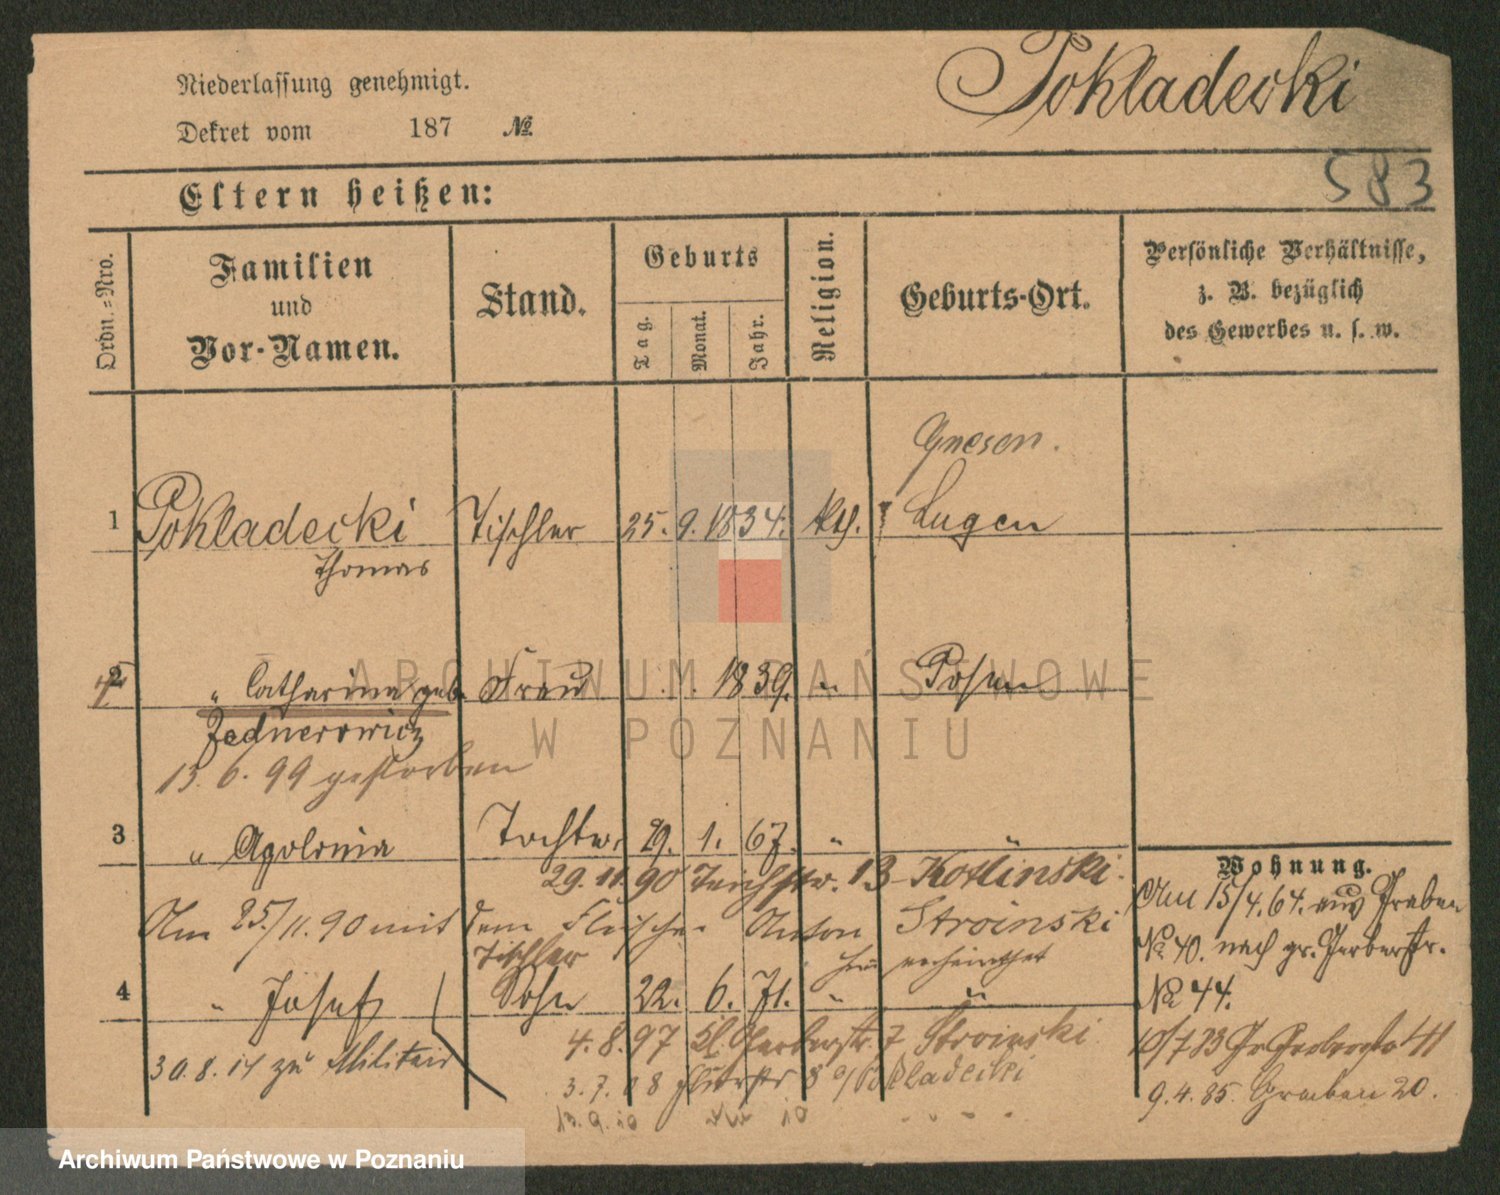 Niederlassung genehmigt.
Pokladecki
Dekret vom 187 №
Eltern heißen:
583
Ordn.=Nro.
Familien
und
Vor-Namen.
Stand.
Geburts
Tag.
Monat.
Jahr.
Religion.
Geburts-Ort.
Persönliche Verhältnisse,
z. B. bezüglich
des Gewerbes u. s. w.
Gnesen.
1 Pokladecki Tischler 25. 9. 1834. kth. Lugen
Thomas
2 " Catharina geb. Frau 1839. " Posen
Jednerowicz
13. 6. 99 gestorben
3 " Apolonia Tochter 29. 1. 67. " "
29. 11. 90 Teichstr. 13 Kotlinski.
Am 25./11. 90 mit dem Fleischer Anton Stroinski
hier verheirathet
Tischler
4 " Josef Sohn 22. 6. 71. " "
4. 8. 97 Kl. Gerberstr. 7 Stroinski
30. 8. 14 zu Militär
3. 7. 08 8 Pokladecki
13. 9. 10
Wohnung.
Am 15/4. 64. aus Graben
No 40. nach gr. Gerberstr.
No 44.
10/7 83 Gr. Gerberstr 41
9. 4. 85. Graben 20.
ARCHIWUM PAŃSTWOWE
W POZNANIU
Archiwum Państwowe w Poznaniu